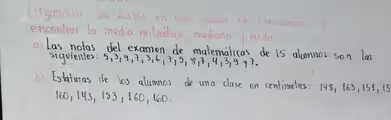 encontrar la media aritmética, mediana y moda
a) Las notas del examen de matemáticas de 15 alumnos son las
siguientes: 5, 3, 9, 7, 3, 6, 7, 5, 8, 7, 4, 3, 9 y 7.
b) Estaturas de los alumnos de una clase en centímetros: 148, 163, 151, 15
160, 143, 153, 160, 160.